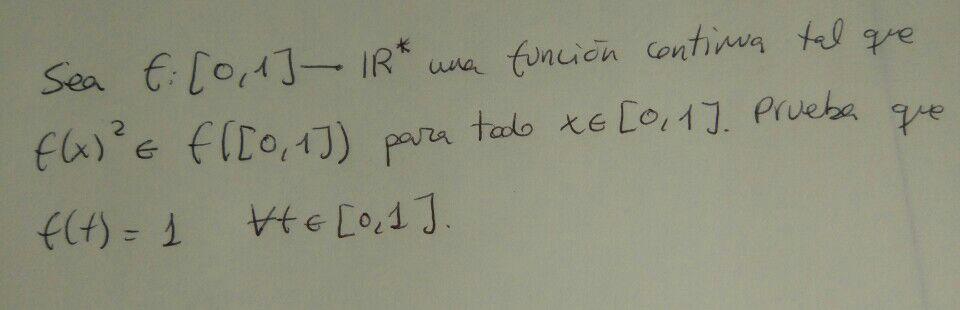 Sea f: [0,1] — IR* una función continua tal que
f(x)² ∈ f([0,1]) para todo x ∈ [0,1]. Prueba que
f(t) = 1 ∀t ∈ [0,1].